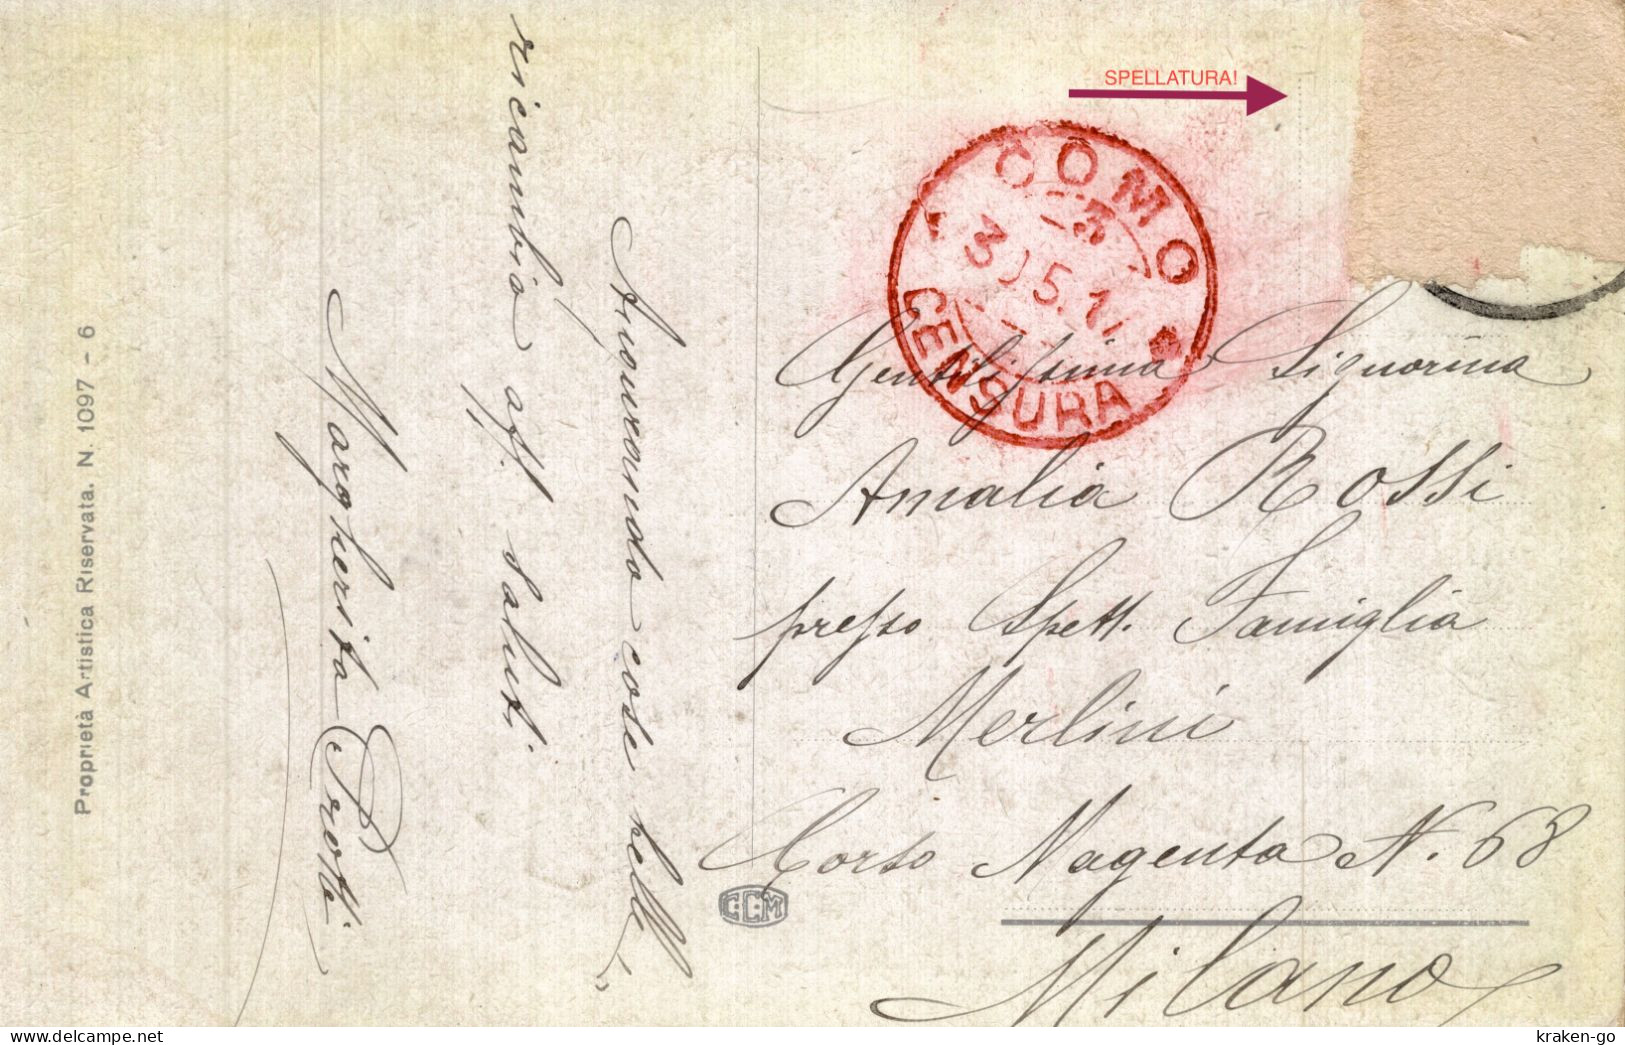 Proprietà Artistica Riservata. N. 1097 - 6
Augurando cose belle
ricambio aff. saluti
Margherita Protti
SPELLATURA!
COMO
3 5.1
CENSURA
Gentilissima Signorina
Amalia Rossi
presso Spett. Famiglia
Merlini
Corso Magenta N. 68
Milano
C.C.M
kraken-go